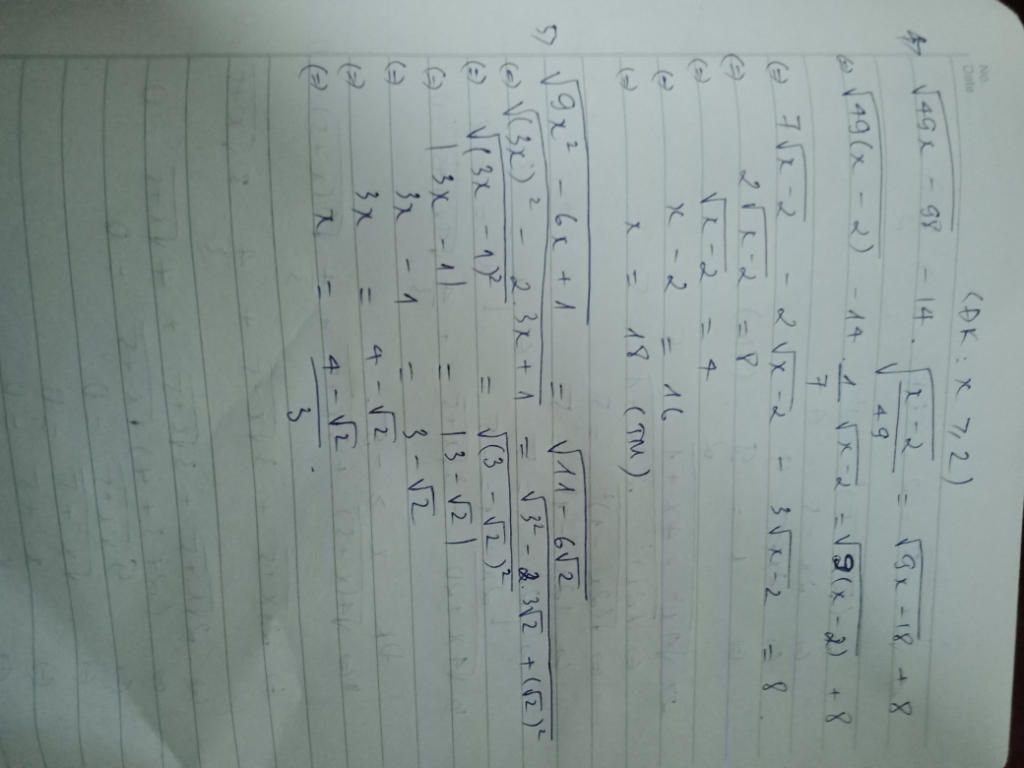 No.
Date
(ĐK: x ≥ 2)
4) √(49x - 98) - 14. √((x-2)/49) = √(9x - 18) + 8
(=) √(49(x - 2)) - 14. 1/7 √(x-2) = √(9(x-2)) + 8
(=) 7√(x-2) - 2√(x-2) - 3√(x-2) = 8.
(=) 2√(x-2) = 8
(=) √(x-2) = 4
(=) x - 2 = 16
(=) x = 18 (TM).
5) √(9x² - 6x + 1) = √(11 - 6√2)
(=) √((3x)² - 2.3x + 1) = √(3² - 2.3√2 + (√2)²)
(=) √((3x - 1)²) = √((3 - √2)²)
(=) |3x - 1| = |3 - √2|
(=) 3x - 1 = 3 - √2
(=) 3x = 4 - √2
(=) x = (4 - √2)/3.